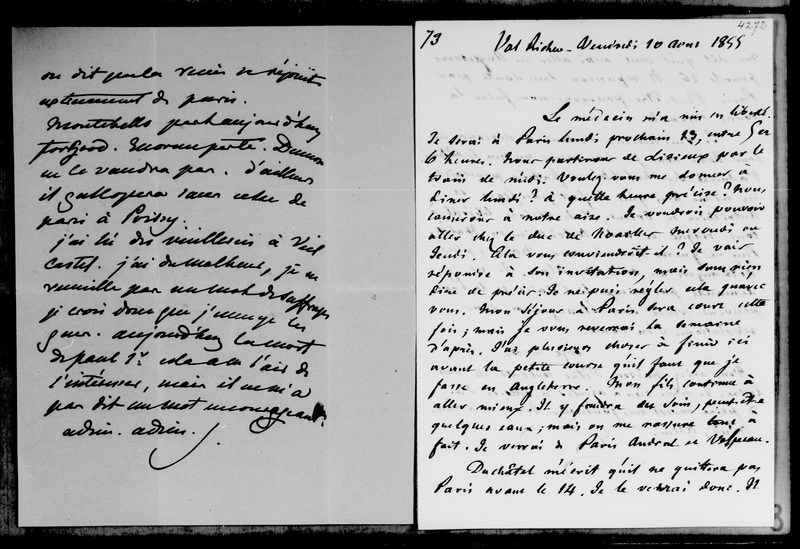 on dit que la reine se réjouit
extrêmement de paris.
Montebello part aujourd'hui
for good. Enorme perte. Dumon
ne le vaudra pas. d'ailleurs
il gallopera sans cesse de
paris à Poissy.
j'ai lû des vieilleries à Viel
castel. j'ai du malheur, je ne
recueille pas un mot de suffrage
je crois donc que j'ennuye les
gens. aujourd'hui la mort
de paul 1er cela a eu l'air de
l'intéresser, mais il ne m'a
pas dit un mot encourageant.
adieu. adieu.
4272
73
Val Richer - Vendredi 10 août 1855
Le médecin m'a mis en liberté.
Je serai à Paris lundi prochain 13, entre 5 et
6 heures. Nous partirons de Lisieux par le
train de midi. Voulez-vous me donner à
diner lundi ? à quelle heure précise ? Nous
causerons à notre aise. Je voudrois pouvoir
aller chez le duc de Noailles mercredi ou
Jeudi. Cela vous conviendroit-il ? Je vais
répondre à son invitation, mais sans rien
dire de précis. Je ne puis régler cela qu'avec
vous. Mon séjour à Paris sera court cette
fois ; mais je vous reverrai la semaine
d'après. J'ai plusieurs choses à finir ici
avant la petite course qu'il faut que je
fasse en Angleterre. Mon fils continue à
aller mieux. Il y faudra des soins, peut-être
quelques eaux ; mais on me rassure tout à
fait. Je verrai à Paris Andral et Velpeau.
Duchâtel m'écrit qu'il ne quittera pas
Paris avant le 14. Je le verrai donc. Il